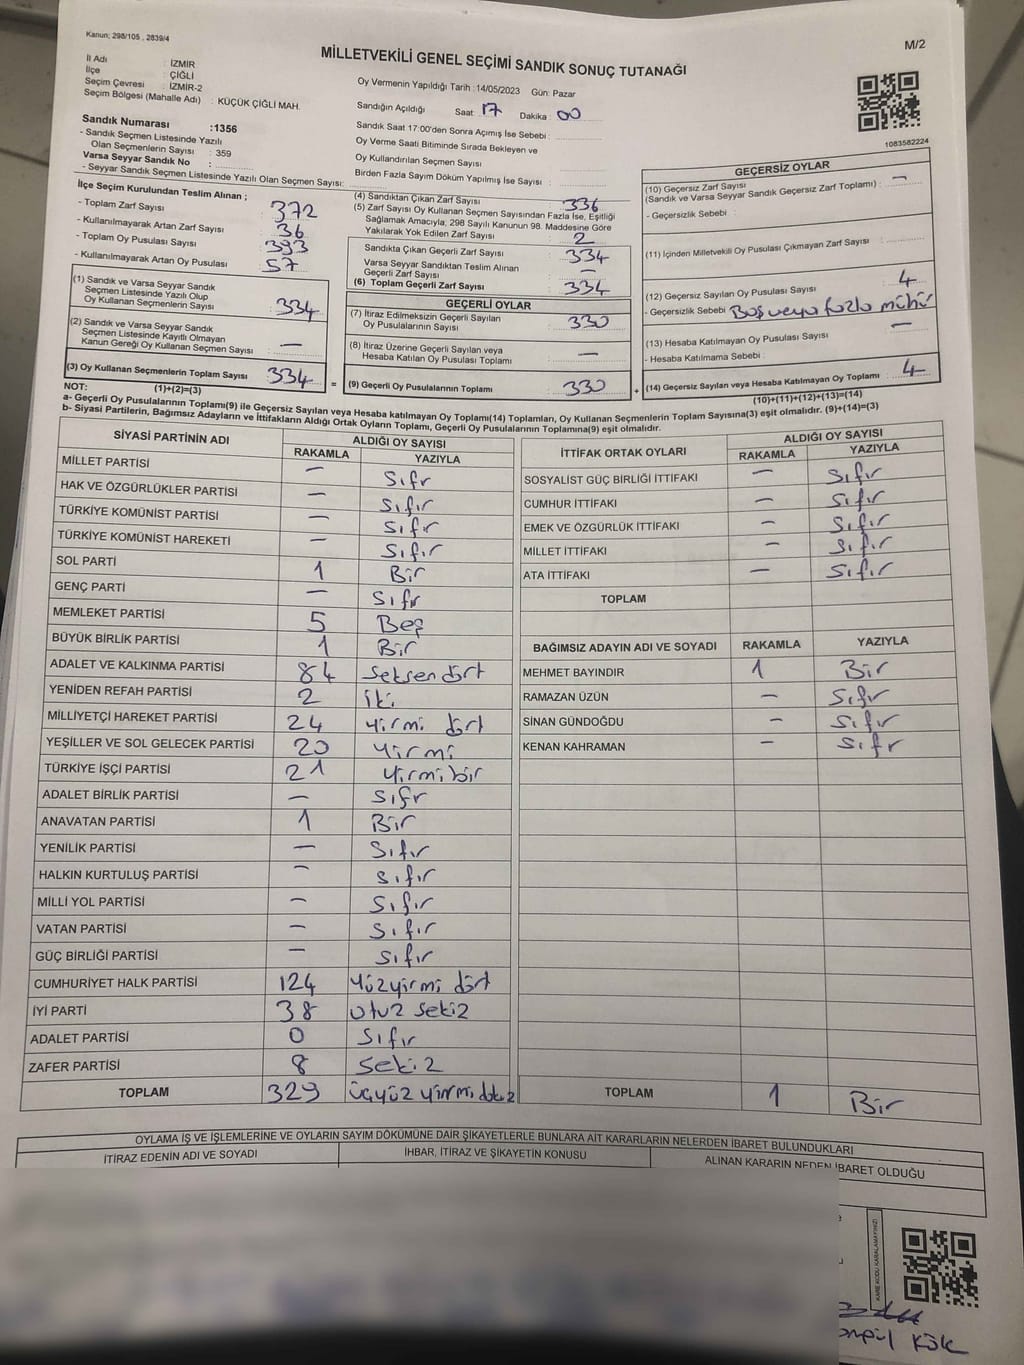 Kanun; 298/105 , 2839/4
MİLLETVEKİLİ GENEL SEÇİMİ SANDIK SONUÇ TUTANAĞI
M/2
İl Adı : İZMİR
İlçe : ÇİĞLİ
Seçim Çevresi : İZMİR-2
Seçim Bölgesi (Mahalle Adı) : KÜÇÜK ÇİĞLİ MAH.
Oy Vermenin Yapıldığı Tarih : 14/05/2023 Gün: Pazar
Sandığın Açıldığı Saat : 17 Dakika : 00
Sandık Saat 17:00'den Sonra Açımış İse Sebebi :
Oy Verme Saati Bitiminde Sırada Bekleyen ve
Oy Kullandırılan Seçmen Sayısı
Birden Fazla Sayım Döküm Yapılmış İse Sayısı :
Sandık Numarası :1356
- Sandık Seçmen Listesinde Yazılı
Olan Seçmenlerin Sayısı : 359
Varsa Seyyar Sandık No :
- Seyyar Sandık Seçmen Listesinde Yazılı Olan Seçmen Sayısı:
İlçe Seçim Kurulundan Teslim Alınan ;
- Toplam Zarf Sayısı : 372
- Kullanılmayarak Artan Zarf Sayısı : 36
- Toplam Oy Pusulası Sayısı : 393
- Kullanılmayarak Artan Oy Pusulası : 57
(1) Sandık ve Varsa Seyyar Sandık
Seçmen Listesinde Yazılı Olup
Oy Kullanan Seçmenlerin Sayısı : 334
(2) Sandık ve Varsa Seyyar Sandık
Seçmen Listesinde Kayıtlı Olmayan
Kanun Gereği Oy Kullanan Seçmen Sayısı : —
(3) Oy Kullanan Seçmenlerin Toplam Sayısı : 334
(4) Sandıktan Çıkan Zarf Sayısı : 336
(5) Zarf Sayısı Oy Kullanan Seçmen Sayısından Fazla İse, Eşitliği
Sağlamak Amacıyla; 298 Sayılı Kanunun 98. Maddesine Göre
Yakılarak Yok Edilen Zarf Sayısı : 2
Sandıkta Çıkan Geçerli Zarf Sayısı : 334
Varsa Seyyar Sandıktan Teslim Alınan
Geçerli Zarf Sayısı : —
(6) Toplam Geçerli Zarf Sayısı : 334
GEÇERLİ OYLAR
(7) İtiraz Edilmeksizin Geçerli Sayılan
Oy Pusulalarının Sayısı : 330
(8) İtiraz Üzerine Geçerli Sayılan veya
Hesaba Katılan Oy Pusulası Toplamı : —
= (9) Geçerli Oy Pusulalarının Toplamı : 330 +
1083582224
GEÇERSİZ OYLAR
(10) Geçersiz Zarf Sayısı
(Sandık ve Varsa Seyyar Sandık Geçersiz Zarf Toplamı) : —
- Geçersizlik Sebebi :
(11) İçinden Milletvekili Oy Pusulası Çıkmayan Zarf Sayısı :
(12) Geçersiz Sayılan Oy Pusulası Sayısı : 4
- Geçersizlik Sebebi : Boş veya fazla mühür
(13) Hesaba Katılmayan Oy Pusulası Sayısı : —
- Hesaba Katılmama Sebebi :
(14) Geçersiz Sayılan veya Hesaba Katılmayan Oy Toplamı : 4
NOT: (1)+(2)=(3)
(10)+(11)+(12)+(13)=(14)
a- Geçerli Oy Pusulalarının Toplamı(9) ile Geçersiz Sayılan veya Hesaba katılmayan Oy Toplamı(14) Toplamları, Oy Kullanan Seçmenlerin Toplam Sayısına(3) eşit olmalıdır. (9)+(14)=(3)
b- Siyasi Partilerin, Bağımsız Adayların ve İttifakların Aldığı Ortak Oyların Toplamı, Geçerli Oy Pusulalarının Toplamına(9) eşit olmalıdır.
SİYASİ PARTİNİN ADI ALDIĞI OY SAYISI
RAKAMLA YAZIYLA
MİLLET PARTİSİ — Sıfır
HAK VE ÖZGÜRLÜKLER PARTİSİ — Sıfır
TÜRKİYE KOMÜNİST PARTİSİ — Sıfır
TÜRKİYE KOMÜNİST HAREKETİ — Sıfır
SOL PARTİ 1 Bir
GENÇ PARTİ — Sıfır
MEMLEKET PARTİSİ 5 Beş
BÜYÜK BİRLİK PARTİSİ 1 Bir
ADALET VE KALKINMA PARTİSİ 84 Seksendört
YENİDEN REFAH PARTİSİ 2 iki
MİLLİYETÇİ HAREKET PARTİSİ 24 Yirmi dört
YEŞİLLER VE SOL GELECEK PARTİSİ 20 Yirmi
TÜRKİYE İŞÇİ PARTİSİ 21 Yirmi bir
ADALET BİRLİK PARTİSİ — Sıfır
ANAVATAN PARTİSİ 1 Bir
YENİLİK PARTİSİ — Sıfır
HALKIN KURTULUŞ PARTİSİ — Sıfır
MİLLİ YOL PARTİSİ — Sıfır
VATAN PARTİSİ — Sıfır
GÜÇ BİRLİĞİ PARTİSİ — Sıfır
CUMHURİYET HALK PARTİSİ 124 Yüzyirmi dört
İYİ PARTİ 38 Otuz sekiz
ADALET PARTİSİ 0 Sıfır
ZAFER PARTİSİ 8 Sekiz
TOPLAM 329 üçyüz yirmi dokuz
İTTİFAK ORTAK OYLARI ALDIĞI OY SAYISI
RAKAMLA YAZIYLA
SOSYALİST GÜÇ BİRLİĞİ İTTİFAKI — Sıfır
CUMHUR İTTİFAKI — Sıfır
EMEK VE ÖZGÜRLÜK İTTİFAKI — Sıfır
MİLLET İTTİFAKI — Sıfır
ATA İTTİFAKI — Sıfır
TOPLAM
BAĞIMSIZ ADAYIN ADI VE SOYADI RAKAMLA YAZIYLA
MEHMET BAYINDIR 1 Bir
RAMAZAN ÜZÜN — Sıfır
SİNAN GÜNDOĞDU — Sıfır
KENAN KAHRAMAN — Sıfır
TOPLAM 1 Bir
OYLAMA İŞ VE İŞLEMLERİNE VE OYLARIN SAYIM DÖKÜMÜNE DAİR ŞİKAYETLERLE BUNLARA AİT KARARLARIN NELERDEN İBARET BULUNDUKLARI
İTİRAZ EDENİN ADI VE SOYADI İHBAR, İTİRAZ VE ŞİKAYETİN KONUSU ALINAN KARARIN NEDEN İBARET OLDUĞU
KARE KODU KARALAMAYINIZ!
Kök